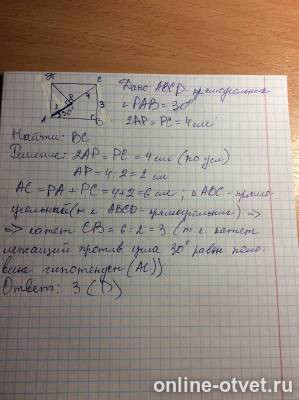 C
Дано: ABCD - прямоугольник
P
4
2
∠PAB = 30°
3
30°
A
2AP = PC = 4 см
Найти: BC
Решение: 2AP = PC = 4 см (по усл)
AP = 4:2 = 2 см
AC = PA + PC = 4+2 = 6 см;
прямо
угольный (т к ABCD - прямоугольник) =>
=> катет CB = 6:2 = 3 (т к катет
лежащий против угла 30° равен поло-
вине гипотенузы (AC))
Ответ: 3
online-otvet.ru